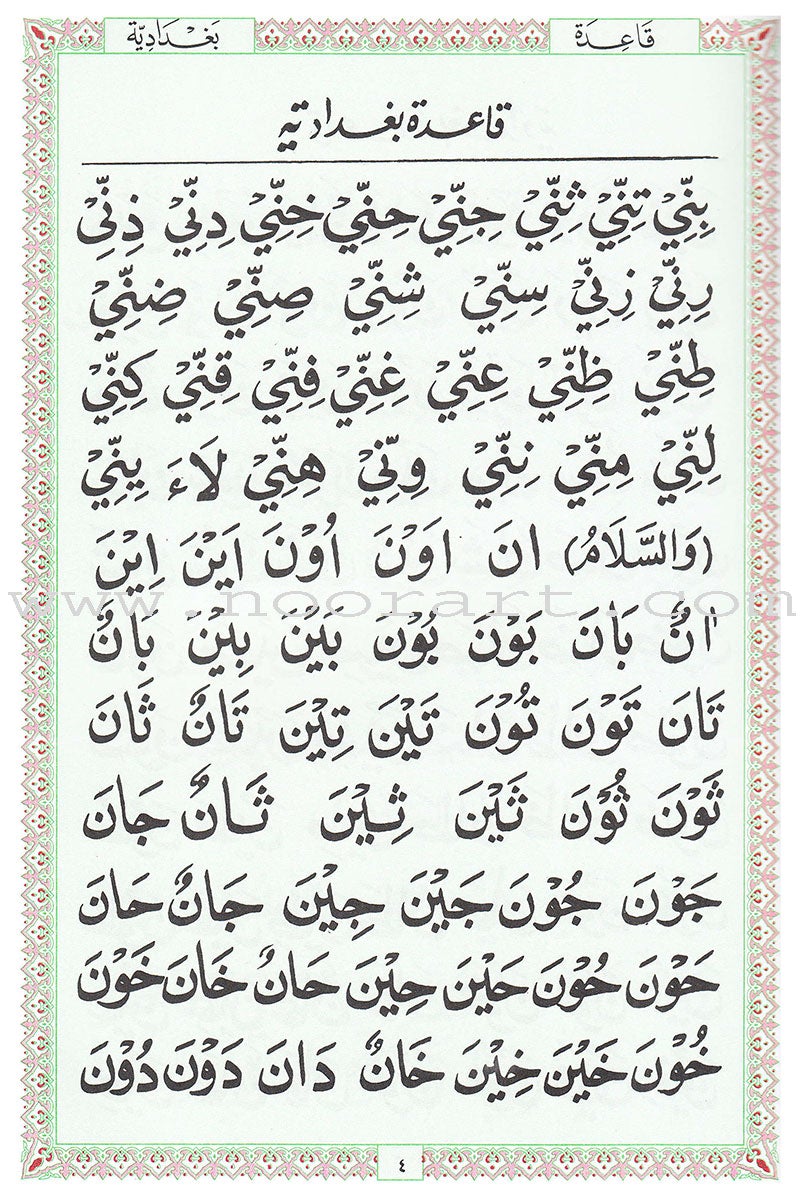 قَاعِدَة بَغْدَادِيَّة
قاعدة بغدادتيه
بِنِّيْ تِنِّيْ ثِنِّيْ جِنِّيْ حِنِّيْ خِنِّيْ دِنِّيْ ذِنِّيْ
رِنِّيْ زِنِّيْ سِنِّيْ شِنِّيْ صِنِّيْ ضِنِّيْ
طِنِّيْ ظِنِّيْ عِنِّيْ غِنِّيْ فِنِّيْ قِنِّيْ كِنِّيْ
لِنِّيْ مِنِّيْ نِنِّيْ وِنِّيْ هِنِّيْ لَاءَ يِنِّيْ
(وَالسَّلَامُ) انَ اَوْنَ اُوْنَ اَيْنَ اِيْنَ
www.noorart.com
اٰنٌ بَانَ بَوْنَ بُوْنَ بَيْنَ بِيْنَ بَانٌ
تَانَ تَوْنَ تُوْنَ تَيْنَ تِيْنَ تَانٌ ثَانَ
ثَوْنَ ثُوْنَ ثَيْنَ ثِيْنَ ثَانٌ جَانَ
جَوْنَ جُوْنَ جَيْنَ جِيْنَ جَانٌ حَانَ
حَوْنَ حُوْنَ حَيْنَ حِيْنَ حَانٌ خَانَ خَوْنَ
خُوْنَ خَيْنَ خِيْنَ خَانٌ دَانَ دَوْنَ دُوْنَ
٤